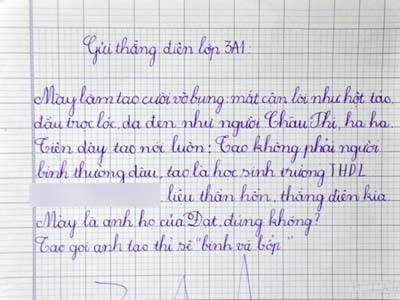 Gửi thằng điên lớp 3A1
Mày làm tao cười vỡ bụng. mắt cận lồi như hột táo,
đầu trọc lóc, da đen như người Châu Thi, ha ha
Tiện đây tao nói luôn: Tao không phải người
bình thường đâu, tao là học sinh trường THDL
liệu thần hồn, thằng điên kia
Mày là anh họ của Đạt, đúng không?
Tao gọi anh tao thì sẽ "binh vá bốp"